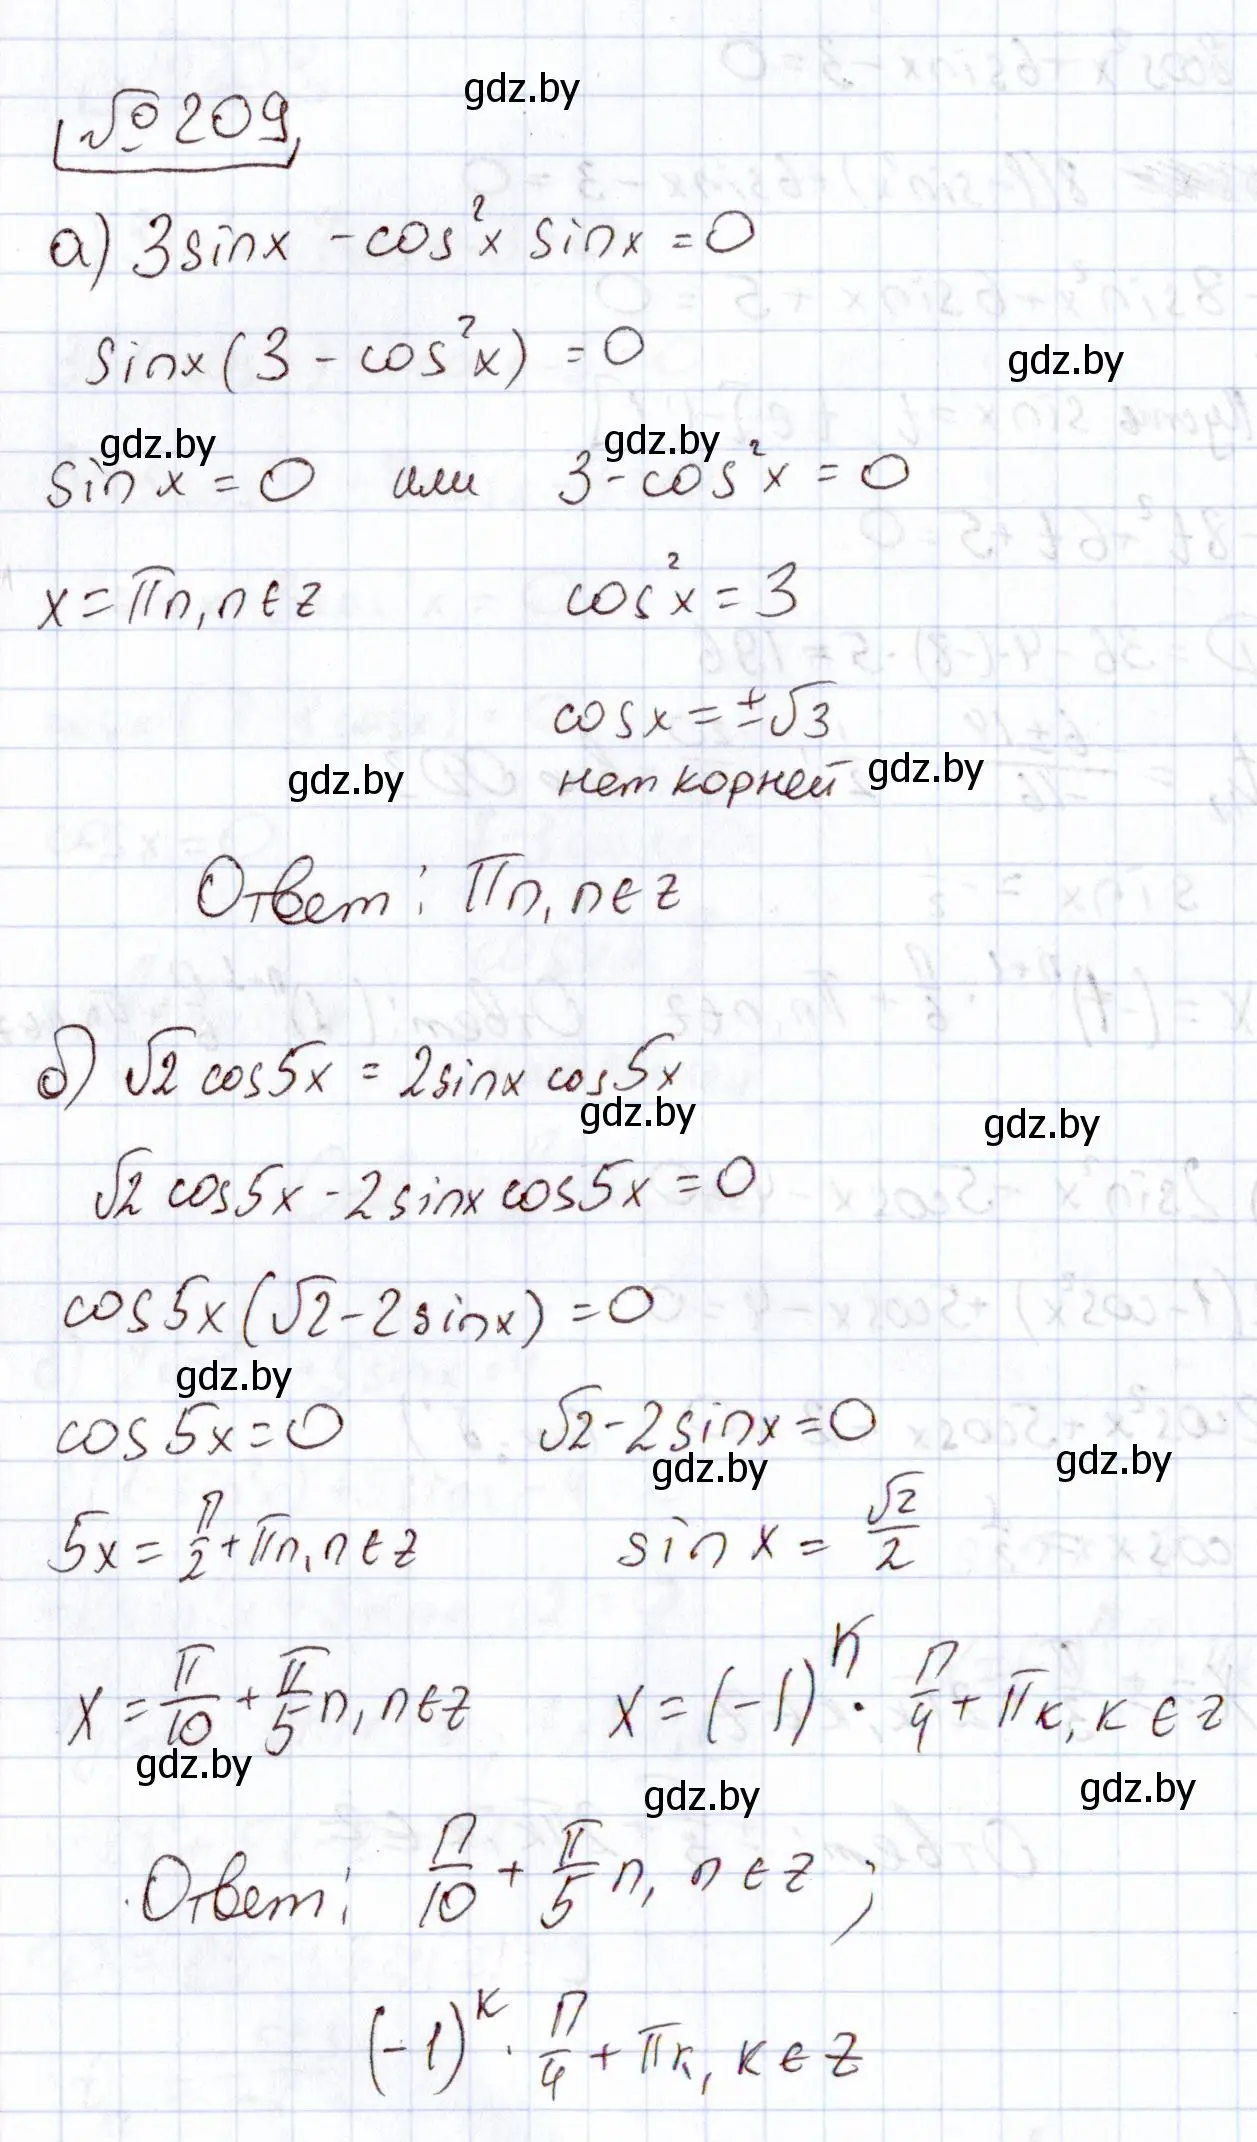 gdz.by
№209
а) 3sinx - cos²x sinx = 0
sinx(3 - cos²x) = 0
gdz.by
gdz.by gdz.by
sinx = 0 или 3 - cos²x = 0
x = πn, n∈z cos²x = 3
cosx = ±√3
gdz.by нет корней gdz.by
Ответ: πn, n∈z
б) √2 cos5x = 2sinx cos5x
gdz.by gdz.by
√2 cos5x - 2sinx cos5x = 0
cos5x(√2 - 2sinx) = 0
gdz.by
cos5x = 0 √2 - 2sinx = 0
gdz.by gdz.by
5x = π/2 + πn, n∈z sinx = √2/2
x = π/10 + π/5 n, n∈z x = (-1)ᴷ · π/4 + πк, к∈z
gdz.by gdz.by gdz.by
Ответ: π/10 + π/5 n, n∈z;
(-1)ᴷ · π/4 + πк, к∈z